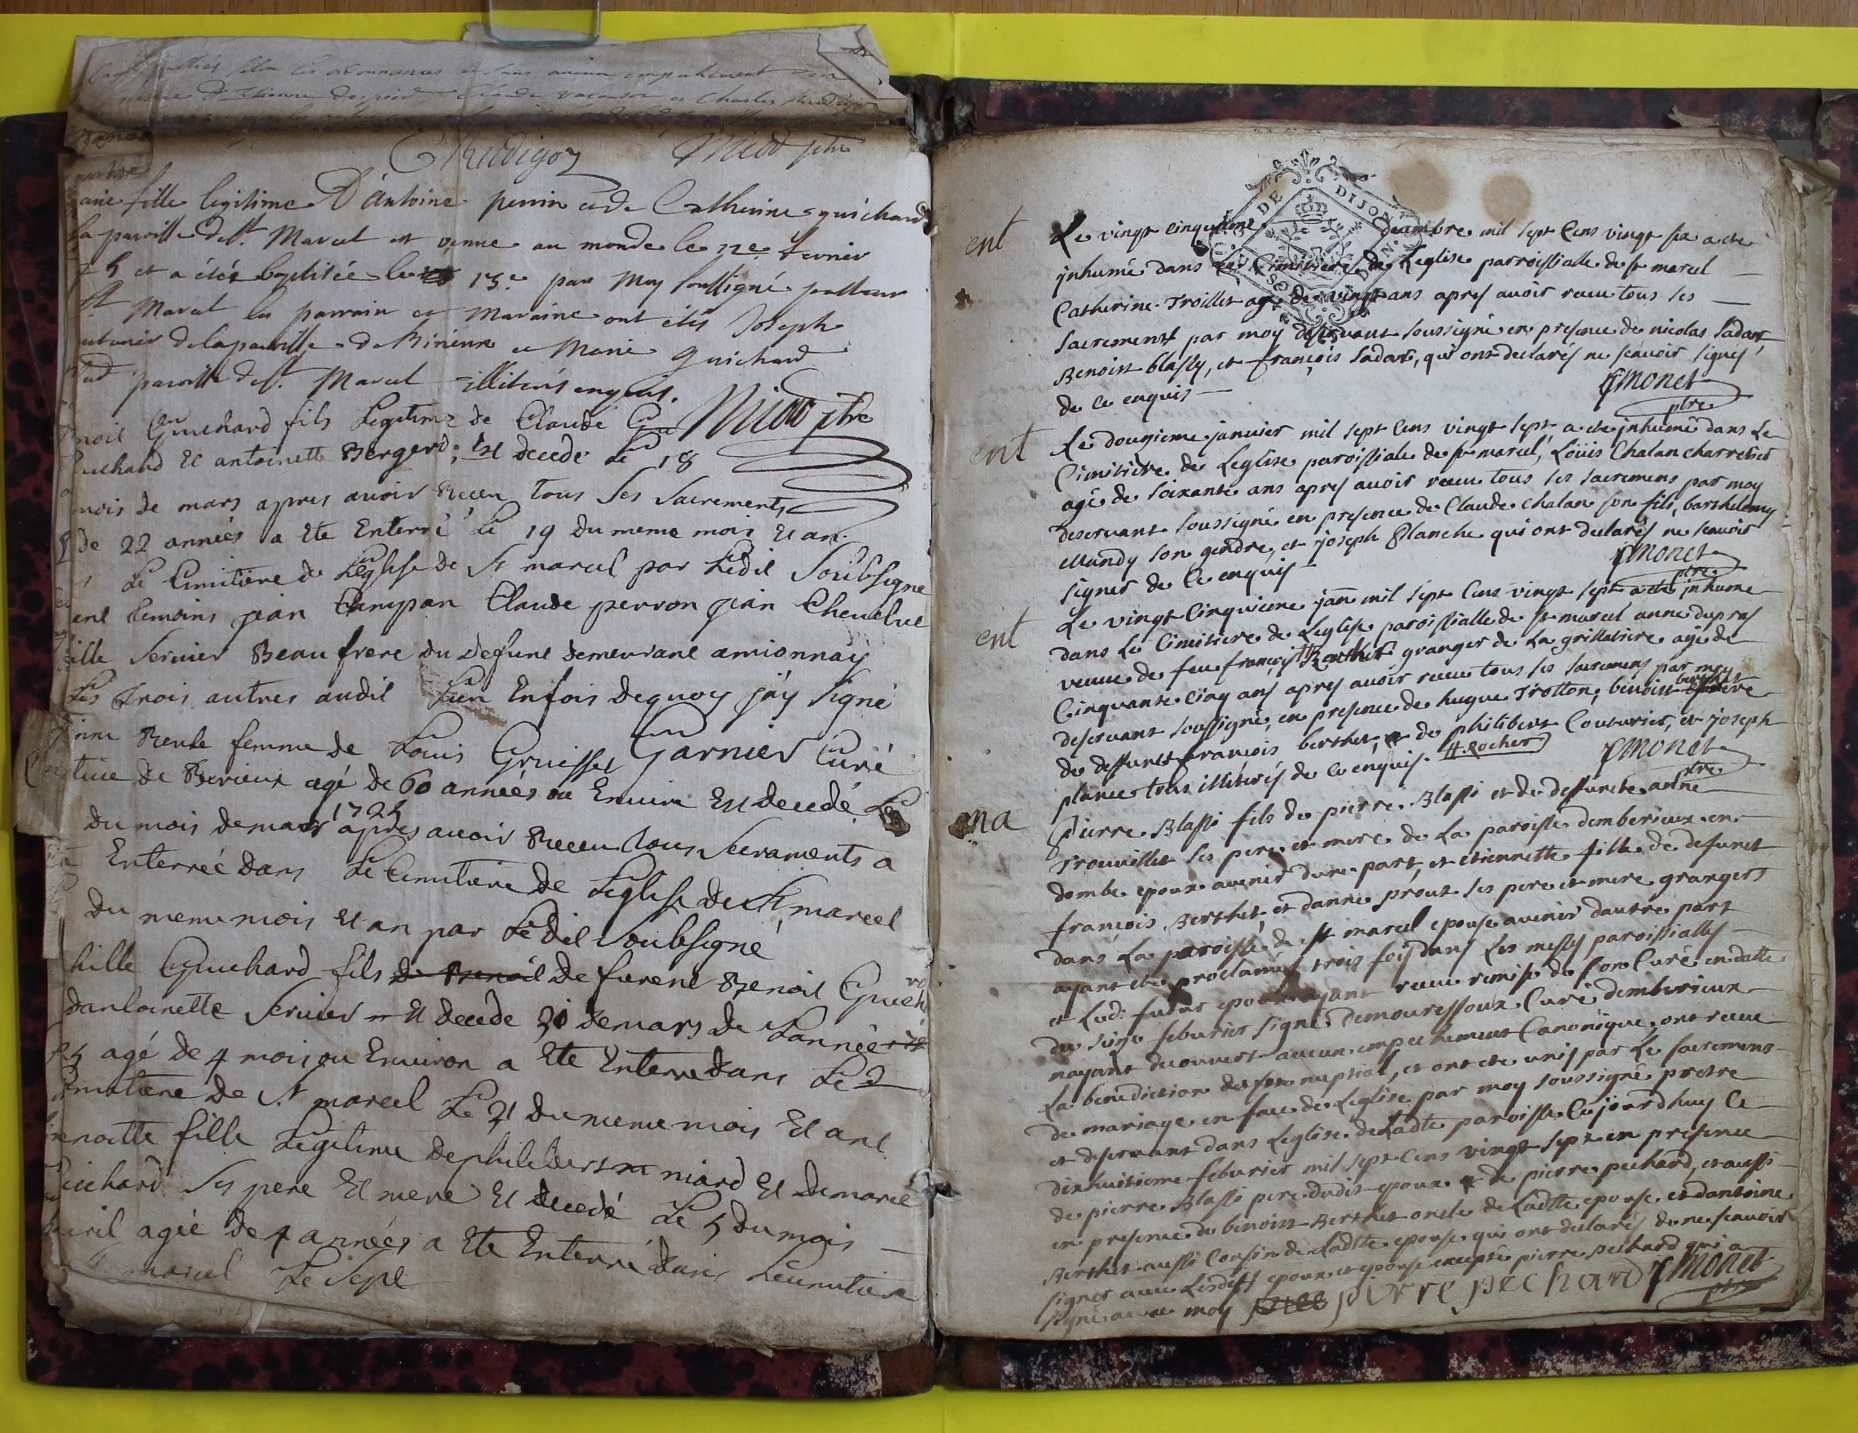 Chudigoz Niod ptre
fille legitime D'Antoine perrin et de Catherine guichard
la paroisse de St. Marcel et venue au monde le
et a étée baptisée le 13e par Moy soussigné
St Marcel les parrain et Maraine ont étés Joseph
de la paroisse de Birieux et Marie guichard
paroisse de St. Marcel illiterés enquis.
Niod ptre
Guichard fils Legitime de Claude Gui
Guichard et antoinette Bergerd; Est decedé Le 18
mois de mars apres avoir Receu tous Ses Sacrements
de 22 années a Ete Enterré Le 19 du meme mois et an
Le Cimitiere de Leglise de St marcel par Ledit Soubsigné
temoins jean Campan Claude perron jean Chevelut
Servier Beau frere du defunt demeurant amionnay
Les trois autres audit Lieu Enfois dequoy j'ay signé
femme de Louis Gruisse Garnier Curé
de Birieux agé de 60 années ou Environ Est decedé Le
du mois de mars 1725 apres avoir Receu tous Sacraments a
Enterrée dans Le Cimitiere de Leglise de St marcel
du meme mois Et an par Ledit Soubsigné
Guichard fils de Benoit de furent Benoit Guich
dantoinette Servier Et decede 30 de mars de Lannée
agé de 4 mois ou Environ a Ete Enterre dans Le
Cimitiere de St marcel Le 31 du meme mois Et ant
fille Legitime de philibert niard Et de marie
Guichard Ses pere Et mere Et decedé Le 5 du mois
agée de 4 années a Ete Enterré dans Le cimitiere
marcel Le Sept
DE DIJON
ent Le vingt cinquieme Decembre mil sept Cens vingt six a ete
jnhumé dans Le Cimitiere de Leglise parroissialle de st marcel
Catherine Troillet agé de vingt ans apres avoir receu tous ses
sacrements par moy deservant soussigné en presence de nicolas sadar,
Benoist blassy, et françois sadar, qui ont declarés ne scavoir signer
de ce enquis Fmonet
ptre
ent Le douzieme janvier mil sept Cens vingt sept a ete jnhumé dans Le
Cimitiere de Leglise paroissiale de st marcel, Loüis Chalan charretier
agé de soixante ans apres avoir receu tous ses sacremens par moy
deservant soussigné en presence de Claude chalan son fils, barthelemy
Mandy son gendre, et joseph Planche qui ont declarés ne scavoir
signer de ce enquis Fmonet
ptre
ent Le vingt Cinquieme janv mil sept Cens vingt sept a ete jnhume
dans Le Cimitiere de Leglise paroissialle de st marcel anne dupras
veuve de feu françois Berthet granger de La grillatiere agé de
Cinquante Cinq ans apres avoir receu tous ses sacremens par moy
deservant soussigné, en presence de hugue Trotton, benoist berthet
du deffunct françois berthet, et de philibert Couturier, et joseph
planche tous illiterés de ce enquis. H. Rocher Fmonet
ptre
ma Pierre Blassi fils de pierre Blassi et de deffuncte anne
Trouillet ses pere et mere de La paroisse demberieux en
dombe epoux avenir dune part, et etiennette fille de defunct
françois Berthet et danne prouz ses pere et mere grangers
dans La paroisse de st marcel epouse avenir dautre part
ayant ete proclamés trois fois dans Les messes paroissialles
et Led. futur epoux ayant receu remise de son Curé en datte
du seize feburier signé demouressoux Curé demberieux
nayant decouvert aucun empechement Canonique, ont receu
La benediction nuptial, et ont ete unis par Le sacremens
de mariage en face de Leglise par moy soussigné pretre
et deservant dans Leglise de Ladte paroisse Cejourdhuy Le
dixhuitieme feburier mil sept Cens vingt sept en presence
de pierre Blassi pere dudit epoux et de pierre pechard, et aussi
en presence de benoist Berthet oncle de Ladte epouse et dantoine
Berthet aussi Cousin de Ladte epouse qui ont declarés de ne scavoir
signer avec Lesdits epoux et epouse excepté pierre pechard qui a
signé avec moy pierre pechard Fmonet
ptre